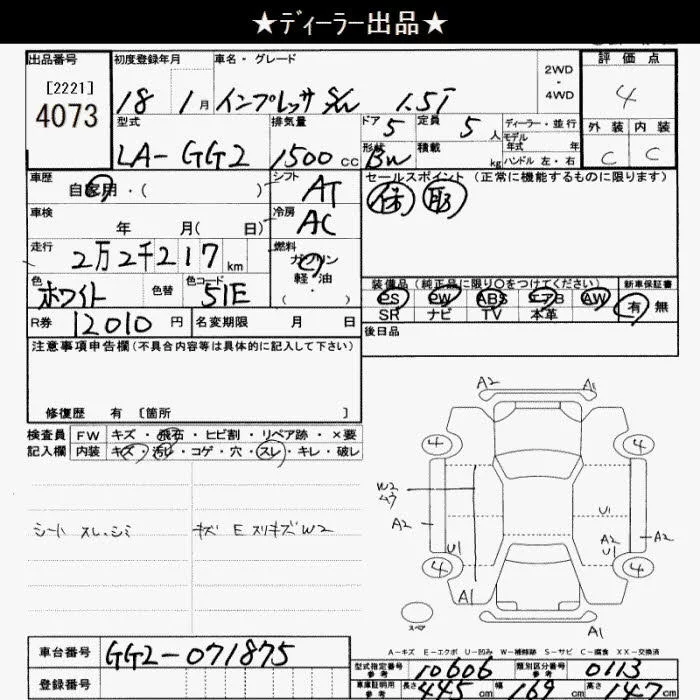 ★ディーラー出品★
出品番号 初度登録年月 車名・グレード 2WD・4WD 評価点
[2221]
4073
18 1月 インプレッサ S/W 1.5i 4
型式 排気量 ドア 5 定員 5人 ディーラー・並行 外装 内装
モデル年式 年
LA-GG2 1500cc 形状 BW 積載 kg ハンドル 左・右 C C
車歴 自家用・( ) シフト AT セールスポイント(正常に機能するものに限ります)
保 取
車検 年 月( 日) 冷房 AC
走行 2万2千217km 燃料 ガソリン
軽・油
・( )
色 ホワイト 色替 色コード 51E
装備品(純正品に限り○をつけてください) 新車保証書
PS PW ABS エアB AW 有・無
SR ナビ TV 本革
R券 12010円 名変期限 月 日 後日品
注意事項申告欄(不具合内容等は具体的に記入して下さい)
修復歴 有 [箇所 ]
検査員 FW キズ・飛石・ヒビ割・リペア跡・×要
記入欄 内装 キズ・汚れ・コゲ・穴・スレ・キレ・破レ
シート スレ、シミ キズ E スリキズ W2
A2 A1
4 4
W2
A2 U1 A2 A2
U1 U1
4 4
A1
スペア A1
A-キズ E-エクボ U-凹み W-補修跡 S-サビ C-腐食 XX-交換済
車台番号 GG2-071875
型式指定番号 参考 10606 類別区分番号 参考 0113
登録番号
車庫証明用 参考 長さ 445cm 幅 169cm 高さ 147cm